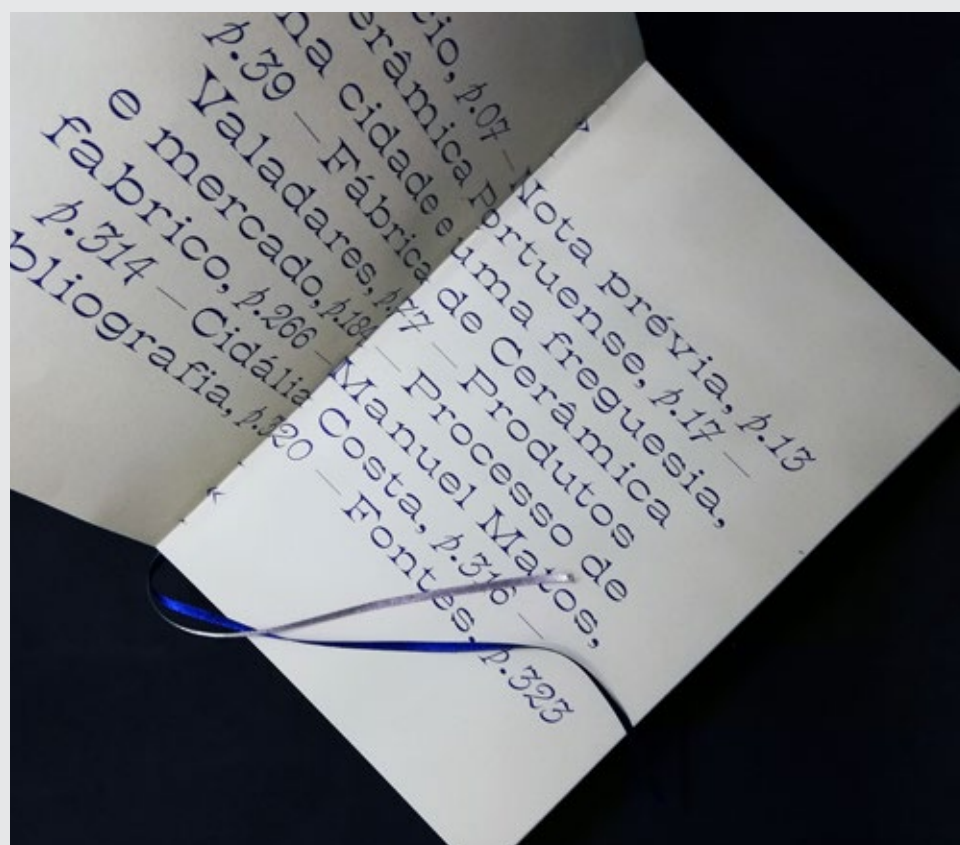 cio, p.07 — Nota prévia, p.13
erâmica Portuense, p.17 —
na cidade e uma freguesia,
p.39 — Fábrica de Cerâmica
Valadares, p.77 — Produtos
e mercado, p.184 — Processo de
fabrico, p.266 — Manuel Matos,
p.314 — Cidália Costa, p.316 —
bliografia, p.320 — Fontes, p.323